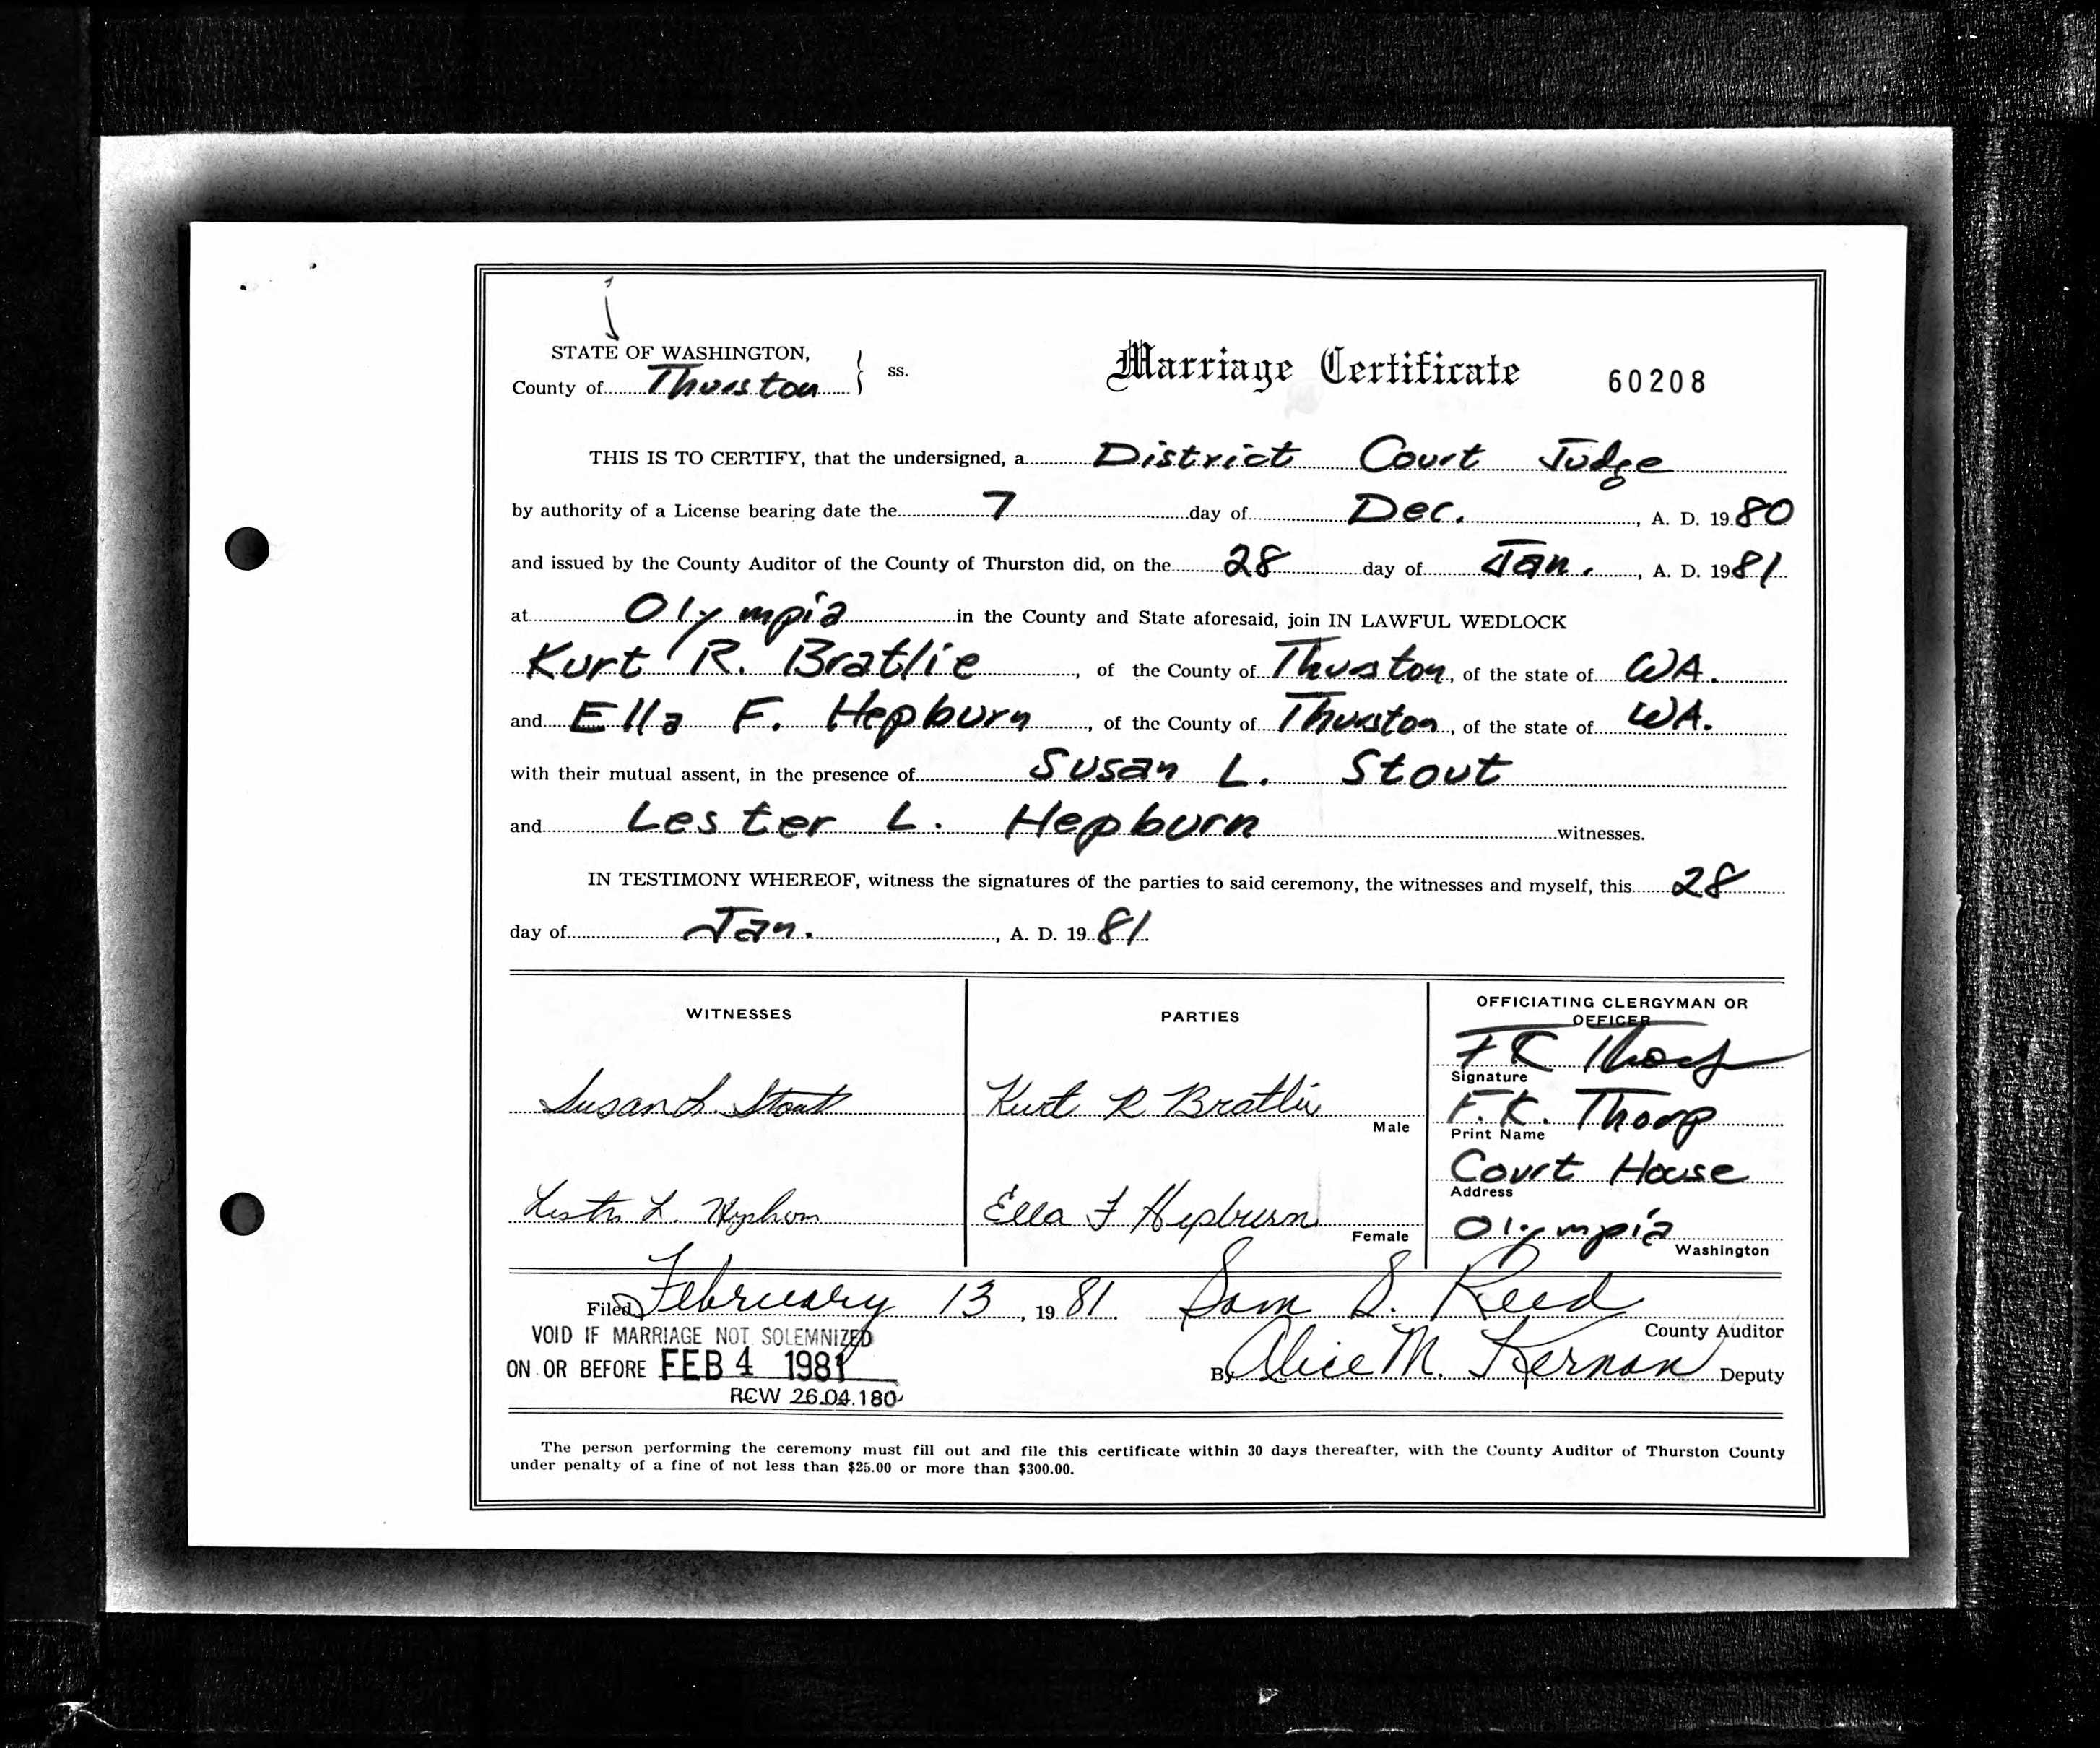 STATE OF WASHINGTON,
County of Thurston } ss.
Marriage Certificate 60208
THIS IS TO CERTIFY, that the undersigned, a District Court Judge
by authority of a License bearing date the 7 day of Dec. , A. D. 1980
and issued by the County Auditor of the County of Thurston did, on the 28 day of Jan. , A. D. 1981
at Olympia in the County and State aforesaid, join IN LAWFUL WEDLOCK
Kurt R. Bratlie , of the County of Thurston , of the state of WA.
and Ella F. Hepburn , of the County of Thurston , of the state of WA.
with their mutual assent, in the presence of Susan L. Stout
and Lester L. Hepburn witnesses.
IN TESTIMONY WHEREOF, witness the signatures of the parties to said ceremony, the witnesses and myself, this 28
day of Jan. , A. D. 1981
WITNESSES
Susan L. Stout
Lester L. Hepburn
PARTIES
Kurt R Bratlie
Male
Ella F Hepburn
Female
OFFICIATING CLERGYMAN OR
OFFICER
F K Thorp
Signature
F. K. Thorp
Print Name
Court House
Address
Olympia
Washington
Filed February 13 , 1981 Sam S. Reed
County Auditor
VOID IF MARRIAGE NOT SOLEMNIZED
ON OR BEFORE FEB 4 1981
RCW 26.04.180
By Alice M. Kernan Deputy
The person performing the ceremony must fill out and file this certificate within 30 days thereafter, with the County Auditor of Thurston County
under penalty of a fine of not less than $25.00 or more than $300.00.